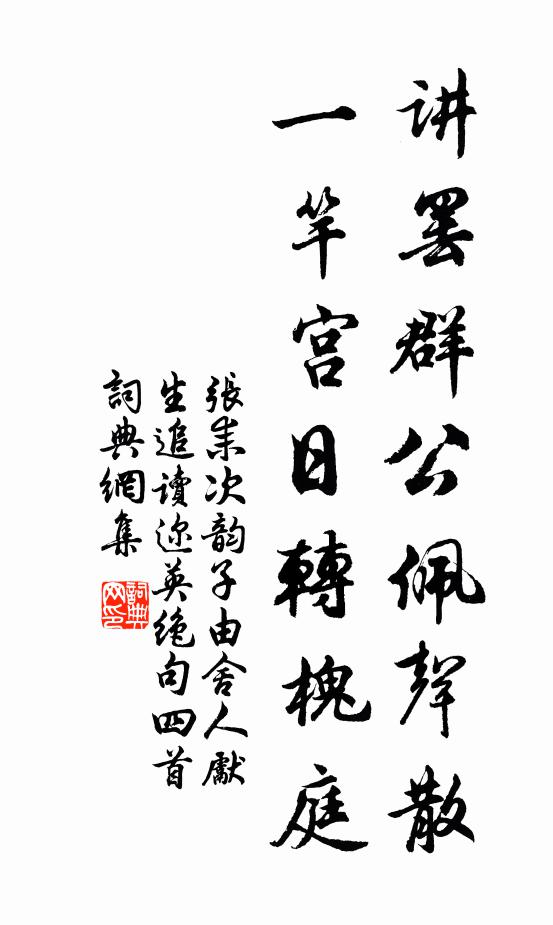 讲罢群公佩聲散
一竿宫日轉槐庭
張耒次韵子由舍人獻
生追讀迩英绝句四首
詞典網集
詞典网印